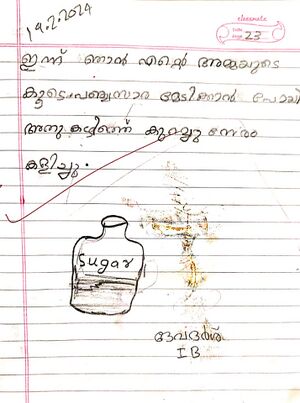 19.2.2024
classmate
Date
Page 23
ഇന്ന് ഞാൻ എന്റെ അമ്മയുടെ
കൂടെ പഞ്ചസാര മേടിക്കാൻ പോയി
അതു കഴിഞ്ഞ് കുറച്ചു നേരം
കളിച്ചു.
Sugar
ദേവദർശ്
I B